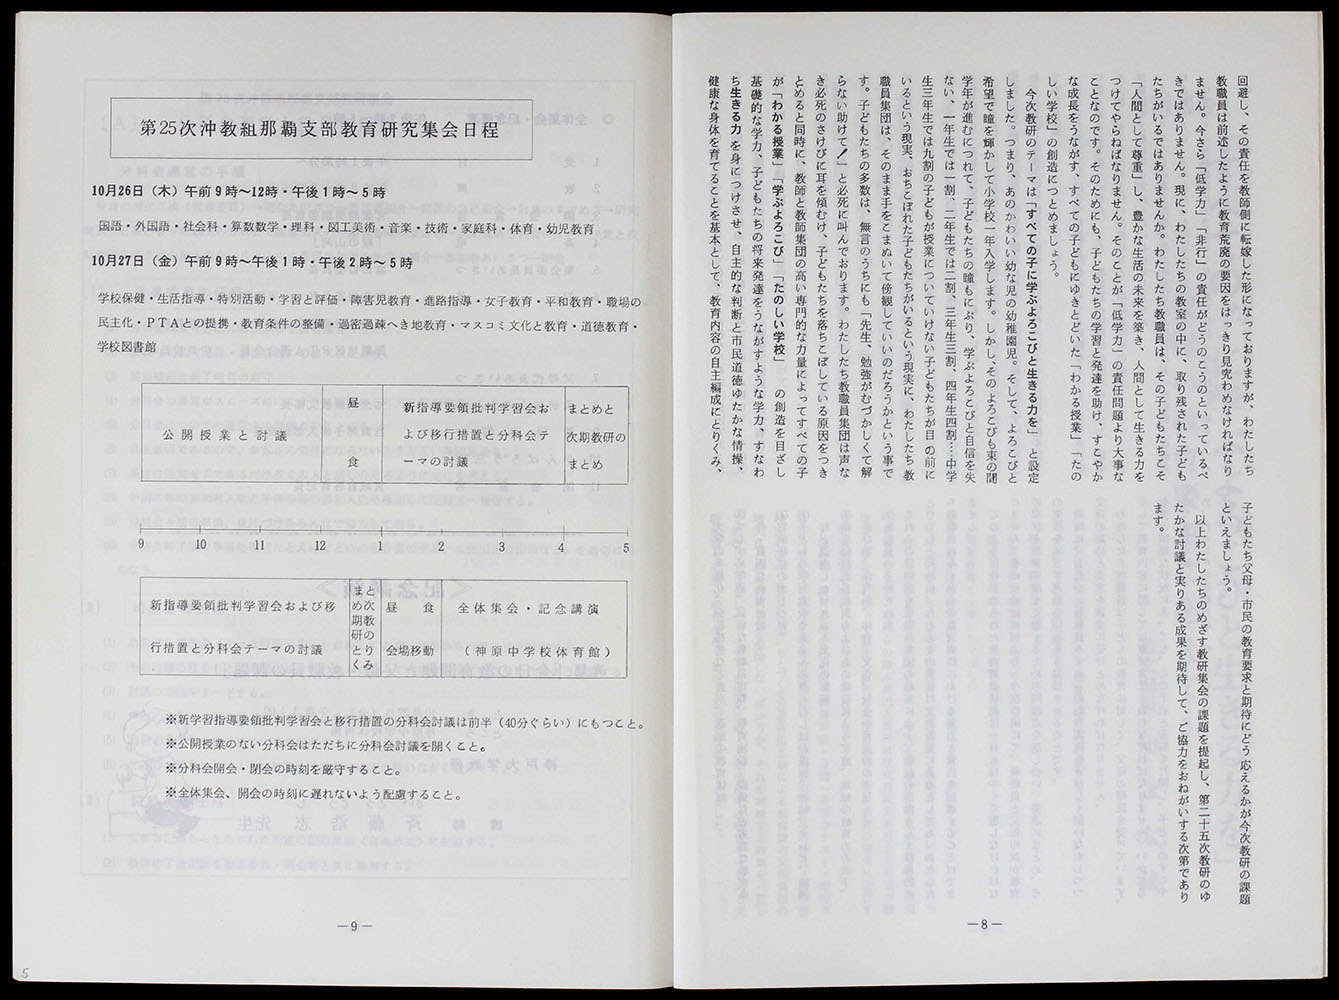 回避し、その責任を教師側に転嫁した形になっておりますが、わたしたち
教職員は前述したように教育荒廃の要因をはっきり見究わめなければなり
ません。今さら「低学力」「非行」の責任がどうのこうのといっているべ
きではありません。現に、わたしたちの教室の中に、取り残された子ども
たちがいるではありませんか。わたしたち教職員は、その子どもたちこそ
「人間として尊重」し、豊かな生活の未来を築き、人間として生きる力を
つけてやらねばなりません。そのことが「低学力」の責任問題より大事な
ことなのです。そのためにも、子どもたちの学習と発達を助け、すこやか
な成長をうながす、すべての子どもにゆきとどいた「わかる授業」「たの
しい学校」の創造につとめましょう。
今次教研のテーマは「すべての子に学ぶよろこびと生きる力を」と設定
しました。つまり、あのかわいい幼な児の幼稚園児。そして、よろこびと
希望で瞳を輝かして小学校一年入学します。しかし、そのよろこびも束の間
学年が進むにつれて、子どもたちの瞳もにぶり、学ぶよろこびと自信を失
ない、一年生では一割、二年生では二割、三年生三割、四年生四割…中学
生三年生では九割の子どもが授業についていけない子どもたちが目の前に
いるという現実、おちこぼれた子どもたちがいるという現実に、わたしたち教
職員集団は、そのまま手をこまぬいて傍観していいのだろうかという事で
す。子どもたちの多数は、無言のうちにも「先生、勉強がむづかしくて解
らない助けて!」と必死に叫んでおります。わたしたち教職員集団は声な
き必死のさけびに耳を傾むけ、子どもたちを落ちこぼしている原因をつき
とめると同時に、教師と教師集団の高い専門的な力量によってすべての子
が「わかる授業」「学ぶよろこび」「たのしい学校」の創造を目ざし
基礎的な学力、子どもたちの将来発達をうながすような学力、すなわ
ち生きる力を身につけさせ、自主的な判断と市民道徳ゆたかな情操、
健康な身体を育てることを基本として、教育内容の自主編成にとりくみ、
子どもたち父母・市民の教育要求と期待にどう応えるかが今次教研の課題
といえましょう。
以上わたしたちのめざす教研集会の課題を提起し、第二十五次教研のゆ
たかな討議と実りある成果を期待して、ご協力をおねがいする次第であり
ます。
—8—
第25次沖教組那覇支部教育研究集会日程
10月26日（木）午前9時〜12時・午後1時〜5時
国語・外国語・社会科・算数数学・理科・図工美術・音楽・技術・家庭科・体育・幼児教育
10月27日（金）午前9時〜午後1時・午後2時〜5時
学校保健・生活指導・特別活動・学習と評価・障害児教育・進路指導・女子教育・平和教育・職場の
民主化・PTAとの提携・教育条件の整備・過密過疎へき地教育・マスコミ文化と教育・道徳教育・
学校図書館
公開授業と討議
昼
食
新指導要領批判学習会お
よび移行措置と分科会テ
ーマの討議
まとめと
次期教研の
まとめ
9 10 11 12 1 2 3 4 5
新指導要領批判学習会および移
行措置と分科会テーマの討議
まと
め次
期教
研の
とり
くみ
昼 食
会場移動
全体集会・記念講演
（神原中学校体育館）
※新学習指導要領批判学習会と移行措置の分科会討議は前半（40分ぐらい）にもつこと。
※公開授業のない分科会はただちに分科会討議を開くこと。
※分科会開会・閉会の時刻を厳守すること。
※全体集会、開会の時刻に遅れないよう配慮すること。
—9—
5